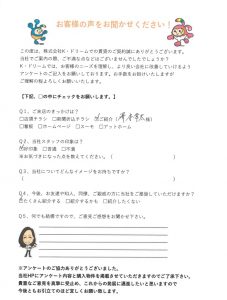 お客様の声をお聞かせください！
この度は、株式会社K・ドリームでの貴重のご契約誠にありがとうございます。
当社でご案内の際、ご不満な点などはございませんでしたでしょうか？
K・ドリームでは、お客様のニーズを理解し、より良い会社に改善していけるよう
アンケートのご記入をお願いしております。お手数をお掛けいたしますが
ご理解の程よろしくお願いいたします。
【下記、□の中にチェックをお願いします。】
Q1、ご来店のきっかけは？
□店頭チラシ □新聞折込チラシ ご紹介（ 様）
□看板 □ホームページ □スーモ □アットホーム
Q2、当社スタッフの印象は？
好印象 □普通 □不満
※お気づきになった点を教えてください。（ ）
Q3、当社についてどんなイメージをお持ちですか？
（ ）
Q4、今後、お友達や知人、同僚、ご親戚の方に当社をご推薦していただけますか？
たくさん紹介する □紹介するかも □紹介したくない
Q5、何でも結構ですので、ご意見ご感想をお聞かせ下さい。
※アンケートのご協力ありがとうございました。
当社HPにアンケート内容と購入物件を掲載させていただきますのでご了承下さい。
貴重なご意見を真摯に受止め、これからの発展に邁進したいと思いますので
今後ともお引立てのほど宜しくお願い致します。